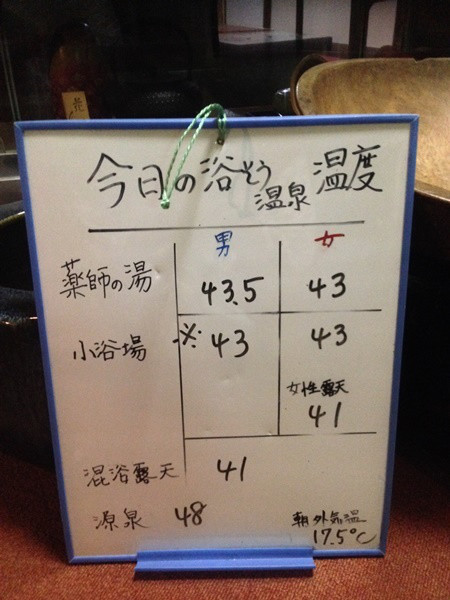 今日の浴そう温泉温度
男 女
薬師の湯 43.5 43
小浴場 ※43 43
女性露天
41
混浴露天 41
源泉 48
朝外気温
17.5℃